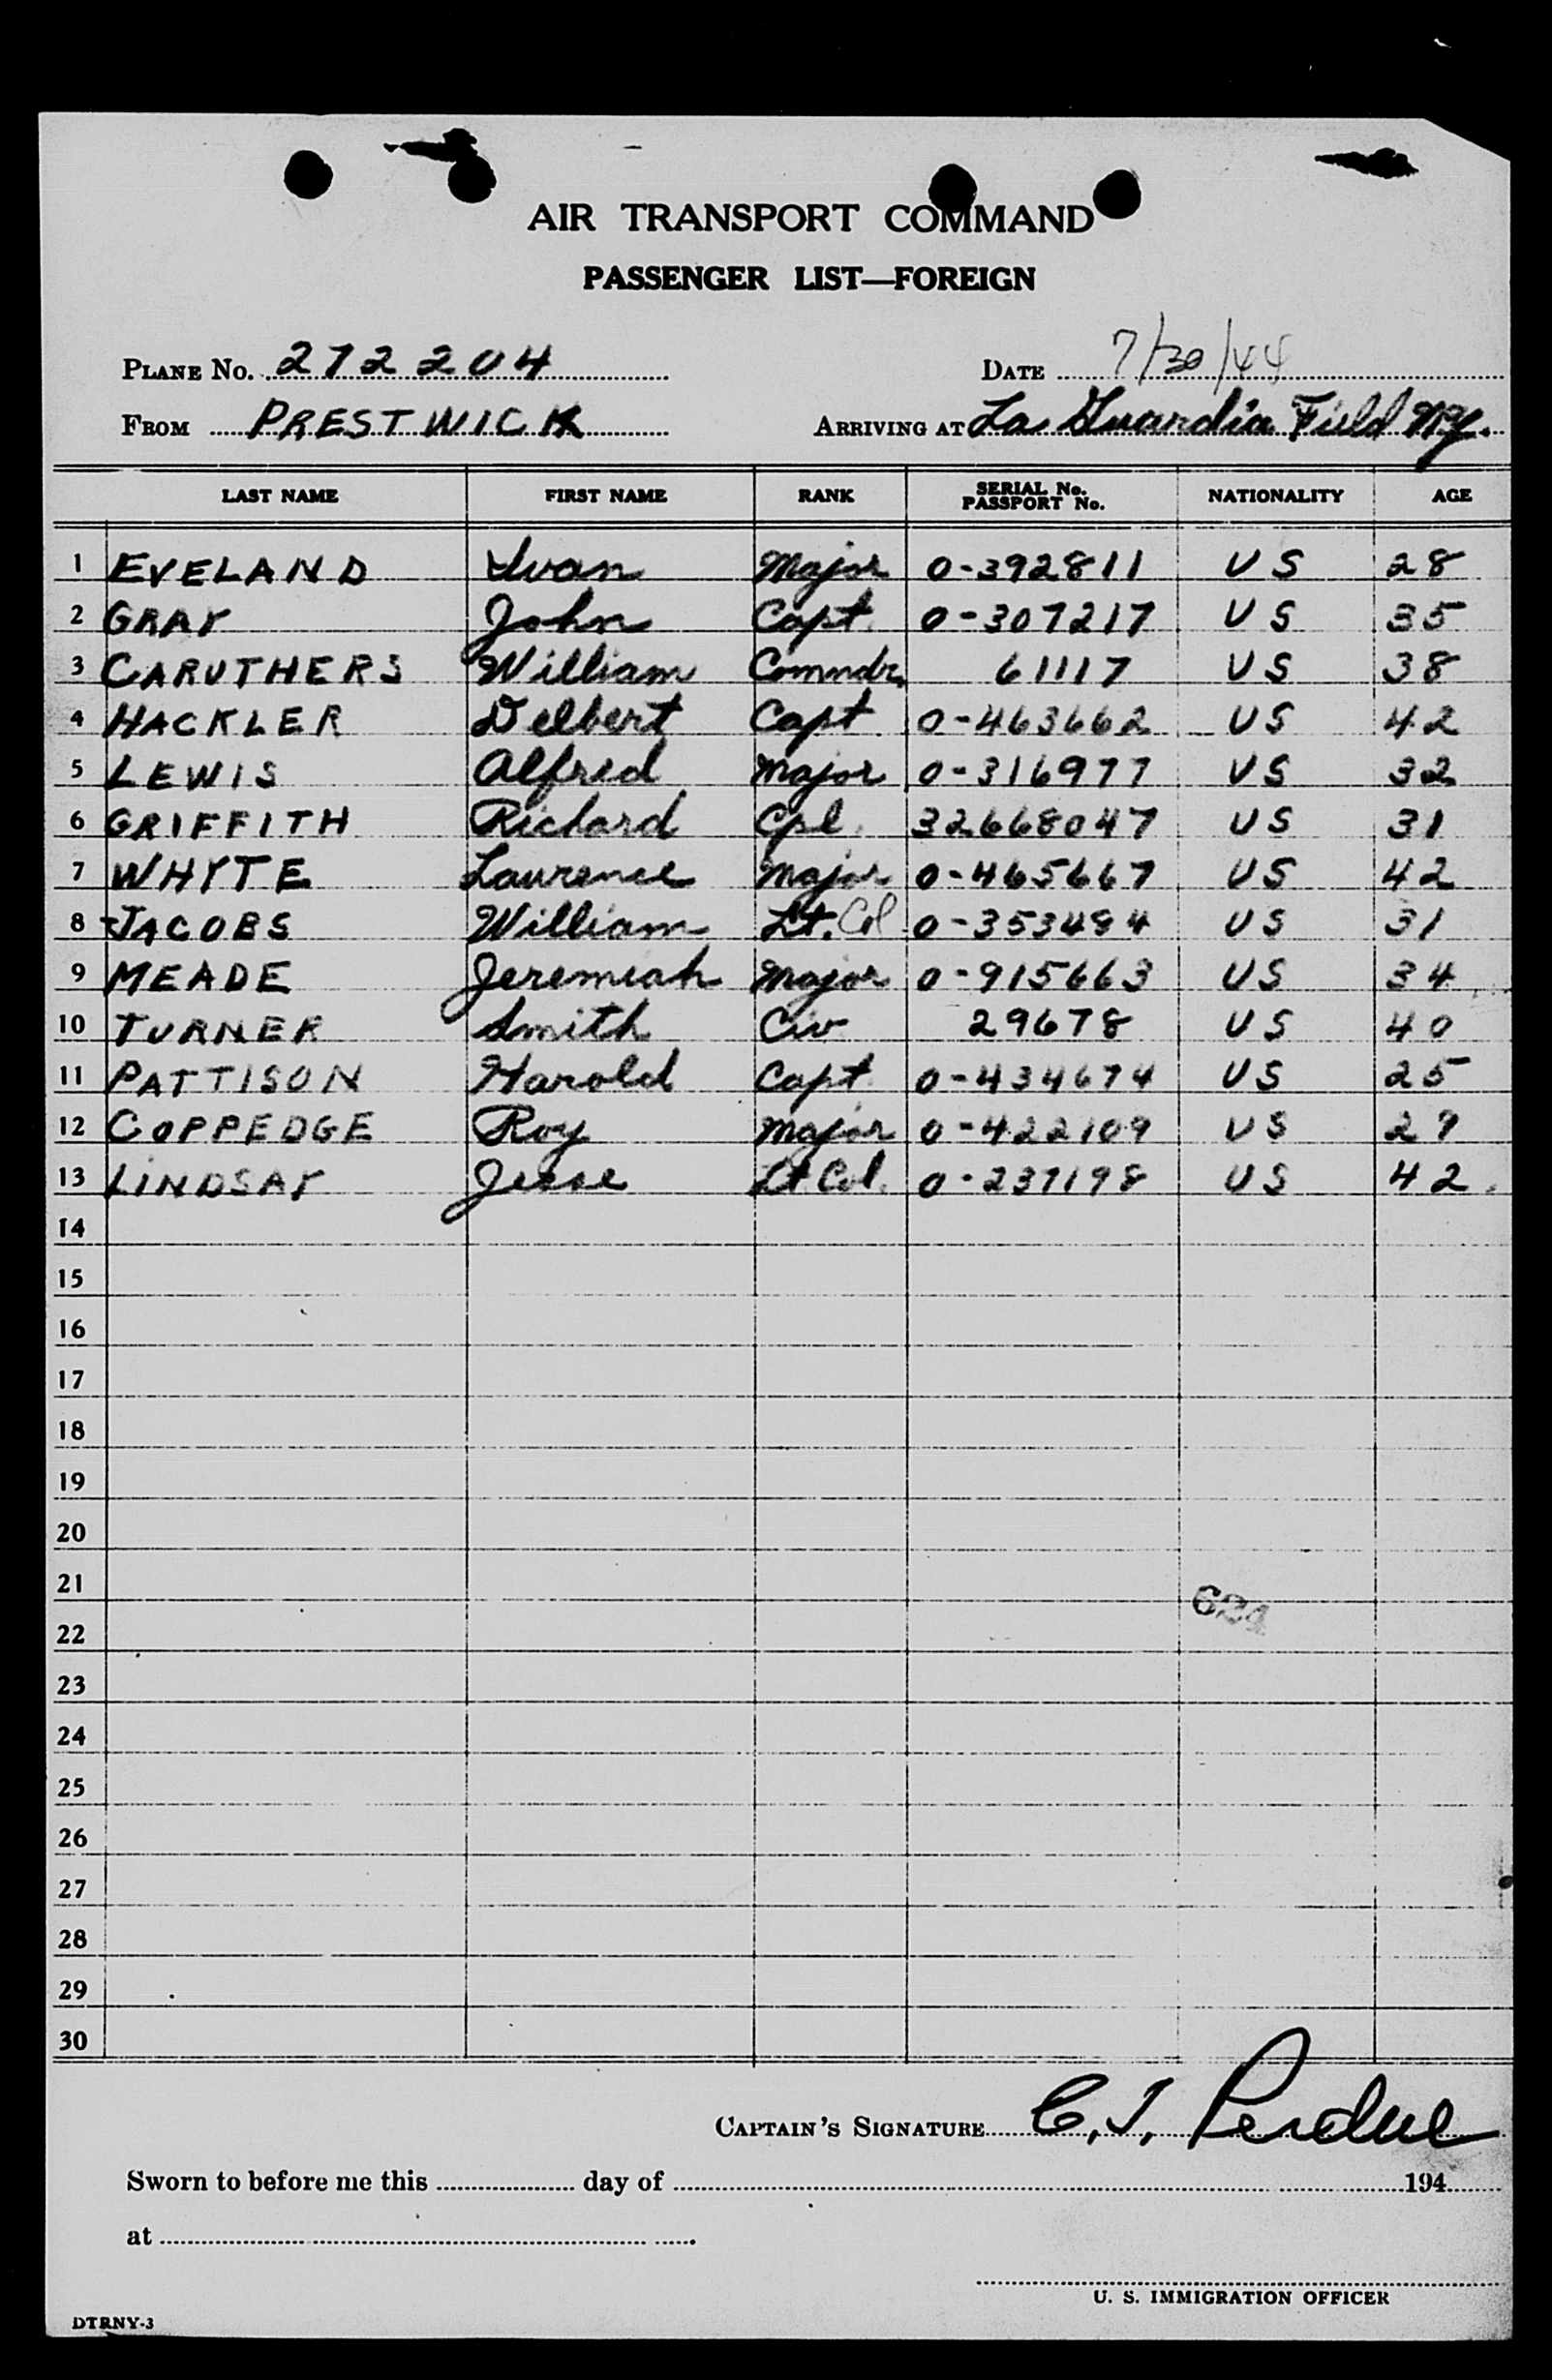 AIR TRANSPORT COMMAND
PASSENGER LIST—FOREIGN
PLANE No. 272204 DATE 7/30/44
FROM PRESTWICK ARRIVING AT La Guardia Field NY.
LAST NAME FIRST NAME RANK SERIAL No. PASSPORT No. NATIONALITY AGE
1 EVELAND Ivan Major 0-392811 US 28
2 GRAY John Capt. 0-307217 US 35
3 CARUTHERS William Comndr. 61117 US 38
4 HACKLER Delbert Capt 0-463662 US 42
5 LEWIS Alfred Major 0-316977 US 32
6 GRIFFITH Richard Cpl. 32668047 US 31
7 WHYTE Laurence Major 0-465667 US 42
8 JACOBS William Lt. Col 0-353484 US 31
9 MEADE Jeremiah Major 0-915663 US 34
10 TURNER Smith Civ 29678 US 40
11 PATTISON Harold Capt. 0-434674 US 25
12 COPPEDGE Roy Major 0-422109 US 27
13 LINDSAY Jesse Lt. Col. 0-237198 US 42
14
15
16
17
18
19
20
21
624
22
23
24
25
26
27
28
29
30
CAPTAIN'S SIGNATURE C. J. Perdue
Sworn to before me this day of 194
at
U. S. IMMIGRATION OFFICER
DTRNY-3